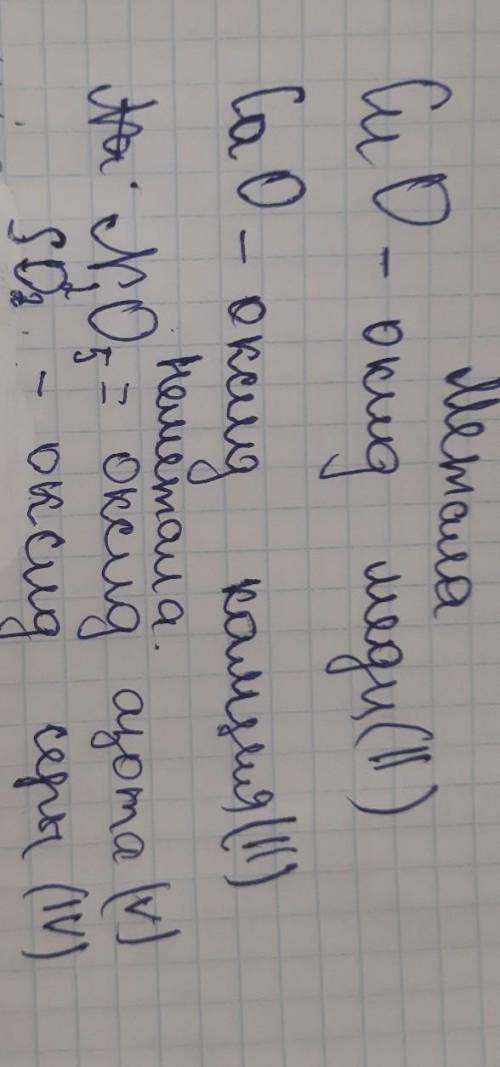 Метала
CuO - оксид меди (II)
CaO - оксид кальция (II)
Неметала.
N₂O₅ = оксид азота (V)
SO₂ - оксид серы (IV)